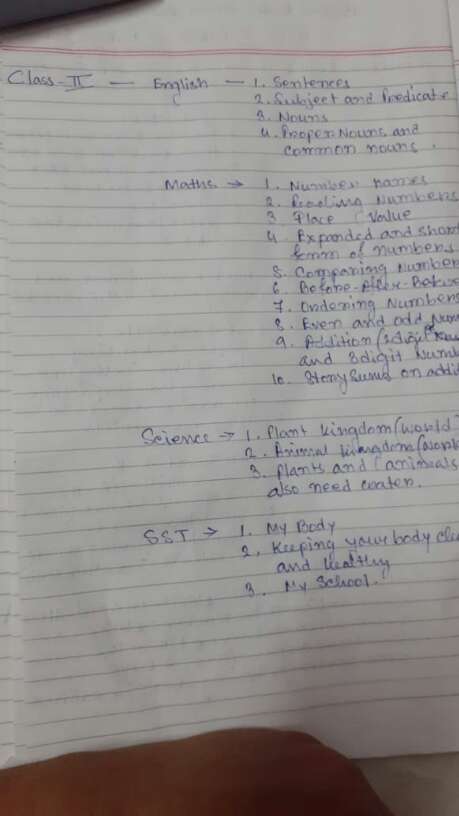 Class-II — English — 1. Sentences
2. Subject and Predicate
3. Nouns
4. Proper Nouns and
common nouns.
Maths → 1. Number names
2. Reading Numbers
3. Place Value
4. Expanded and short
form of numbers
5. Comparing Number
6. Before-After-Betwe
7. Ordering Numbers
8. Even and odd Num
9. Addition
and 3digit Numb
10. Story Sums on addi
Science → 1. Plant kingdom (world
2. Animal kingdom (world
3. Plants and animals
also need water.
SST → 1. My Body
2. Keeping your body cle
and Healthy
3. My School.